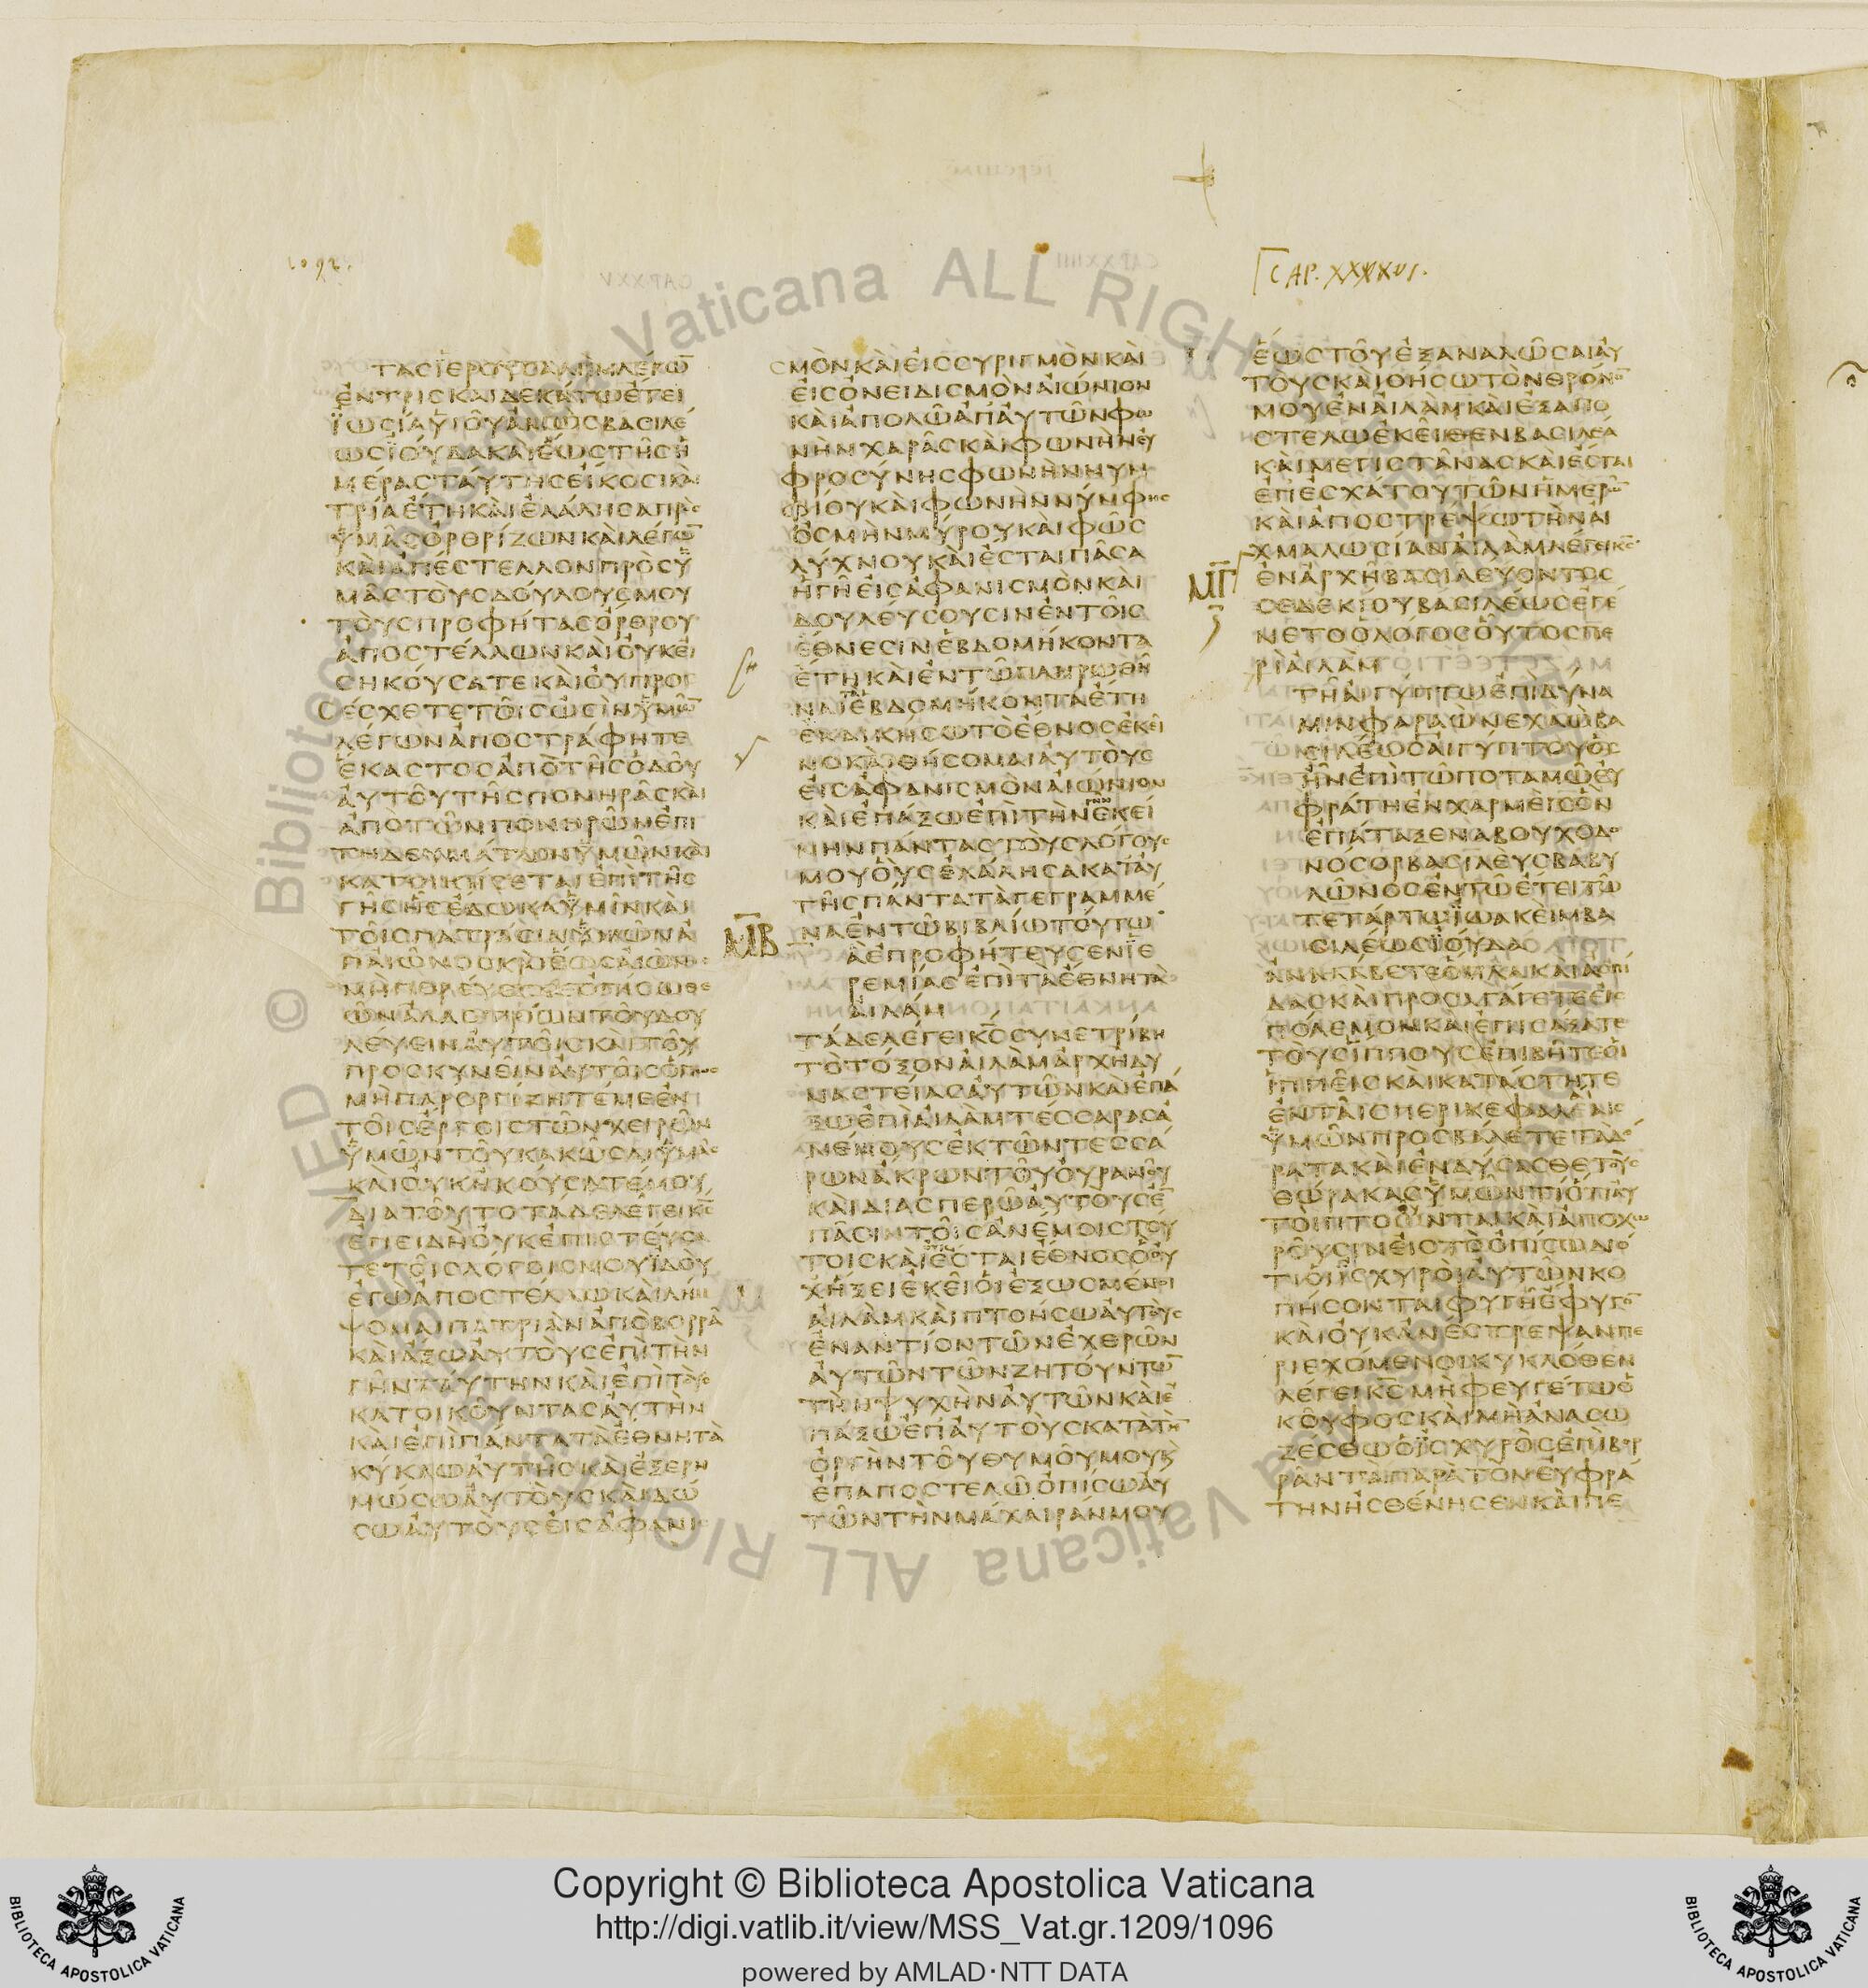 1092.
CAP. XXXXVI.
ΤΑΣ ΙΕΡΟΥΣΑΛΗΜ ΛΕΓΩ̅
ΕΝ ΤΡΙΣΚΑΙΔΕΚΑΤΩ ΕΤΕΙ
ΙΩΣΙΑ ΥΙΟΥ ΑΜΩΣ ΒΑΣΙΛΕ
ΩΣ ΙΟΥΔΑ ΚΑΙ ΕΩΣ ΤΗΣ Η
ΜΕΡΑΣ ΤΑΥΤΗΣ ΕΙΚΟΣΙ ΚΑΙ
ΤΡΙΑ ΕΤΗ ΚΑΙ ΕΛΑΛΗΣΑ ΠΡΟΣ
ΥΜΑΣ ΟΡΘΡΙΖΩΝ ΚΑΙ ΛΕΓΩ̅
ΚΑΙ ΑΠΕΣΤΕΛΛΟΝ ΠΡΟΣ Υ
ΜΑΣ ΤΟΥΣ ΔΟΥΛΟΥΣ ΜΟΥ
ΤΟΥΣ ΠΡΟΦΗΤΑΣ ΟΡΘΡΟΥ
ΑΠΟΣΤΕΛΛΩΝ ΚΑΙ ΟΥΚ ΕΙ
ΣΗΚΟΥΣΑΤΕ ΚΑΙ ΟΥ ΠΡΟΣ
ΕΣΧΕΤΕ ΤΟΙΣ ΩΣΙΝ ΥΜΩ̅
ΛΕΓΩΝ ΑΠΟΣΤΡΑΦΗΤΕ
ΕΚΑΣΤΟΣ ΑΠΟ ΤΗΣ ΟΔΟΥ
ΑΥΤΟΥ ΤΗΣ ΠΟΝΗΡΑΣ ΚΑΙ
ΑΠΟ ΤΩΝ ΠΟΝΗΡΩΝ ΕΠΙ
ΤΗΔΕΥΜΑΤΩΝ ΥΜΩΝ ΚΑΙ
ΚΑΤΟΙΚΗΣΕΤΑΙ ΕΠΙ ΤΗΣ
ΓΗΣ ΗΣ ΕΔΩΚΑ ΥΜΙΝ ΚΑΙ
ΤΟΙΣ ΠΑΤΡΑΣΙΝ ΥΜΩΝ Α
ΠΑΙΩΝΟΣ ΚΑΙ ΕΩΣ ΑΙΩΝΟΣ
ΜΗ ΠΟΡΕΥΕΣΘΕ ΟΠΙΣΩ ΘΕ
ΩΝ ΑΛΛΟΤΡΙΩΝ ΤΟΥ ΔΟΥ
ΛΕΥΕΙΝ ΑΥΤΟΙΣ ΚΑΙ ΤΟΥ
ΠΡΟΣΚΥΝΕΙΝ ΑΥΤΟΙΣ ΟΠΩΣ
ΜΗ ΠΑΡΟΡΓΙΖΗΤΕ ΜΕ ΕΝ
ΤΟΙΣ ΕΡΓΟΙΣ ΤΩΝ ΧΕΙΡΩΝ
ΥΜΩΝ ΤΟΥ ΚΑΚΩΣΑΙ ΥΜΑΣ
ΚΑΙ ΟΥΚ ΗΚΟΥΣΑΤΕ ΜΟΥ
ΔΙΑ ΤΟΥΤΟ ΤΑΔΕ ΛΕΓΕΙ Κ̅Σ̅
ΕΠΕΙΔΗ ΟΥΚ ΕΠΙΣΤΕΥΣΑ
ΤΕ ΤΟΙΣ ΛΟΓΟΙΣ ΜΟΥ ΙΔΟΥ
ΕΓΩ ΑΠΟΣΤΕΛΛΩ ΚΑΙ ΛΗΜ
ΨΟΜΑΙ ΠΑΤΡΙΑΝ ΑΠΟ ΒΟΡΡΑ
ΚΑΙ ΑΞΩ ΑΥΤΟΥΣ ΕΠΙ ΤΗΝ
ΓΗΝ ΤΑΥΤΗΝ ΚΑΙ ΕΠΙ ΤΟΥΣ
ΚΑΤΟΙΚΟΥΝΤΑΣ ΑΥΤΗΝ
ΚΑΙ ΕΠΙ ΠΑΝΤΑ ΤΑ ΕΘΝΗ ΤΑ
ΚΥΚΛΩ ΑΥΤΗΣ ΚΑΙ ΕΞΕΡΗ
ΜΩΣΩ ΑΥΤΟΥΣ ΚΑΙ ΔΩ
ΣΩ ΑΥΤΟΥΣ ΕΙΣ ΑΦΑΝΙ
ΣΜΟΝ ΚΑΙ ΕΙΣ ΣΥΡΙΓΜΟΝ ΚΑΙ
ΕΙΣ ΟΝΕΙΔΙΣΜΟΝ ΑΙΩΝΙΟΝ
ΚΑΙ ΑΠΟΛΩ ΑΠ ΑΥΤΩΝ ΦΩ
ΝΗΝ ΧΑΡΑΣ ΚΑΙ ΦΩΝΗΝ ΕΥ
ΦΡΟΣΥΝΗΣ ΦΩΝΗΝ ΝΥΜ
ΦΙΟΥ ΚΑΙ ΦΩΝΗΝ ΝΥΜΦΗΣ
ΟΣΜΗΝ ΜΥΡΟΥ ΚΑΙ ΦΩΣ
ΛΥΧΝΟΥ ΚΑΙ ΕΣΤΑΙ ΠΑΣΑ
Η ΓΗ ΕΙΣ ΑΦΑΝΙΣΜΟΝ ΚΑΙ
ΔΟΥΛΕΥΣΟΥΣΙΝ ΕΝ ΤΟΙΣ
ΕΘΝΕΣΙΝ ΕΒΔΟΜΗΚΟΝΤΑ
ΕΤΗ ΚΑΙ ΕΝ ΤΩ ΠΛΗΡΩΘΗ
ΝΑΙ ΕΒΔΟΜΗΚΟΝΤΑ ΕΤΗ
ΕΚΔΙΚΗΣΩ ΤΟ ΕΘΝΟΣ ΕΚΕΙ
ΝΟ ΚΑΙ ΘΗΣΟΜΑΙ ΑΥΤΟΥΣ
ΕΙΣ ΑΦΑΝΙΣΜΟΝ ΑΙΩΝΙΟΝ
ΚΑΙ ΕΠΑΞΩ ΕΠΙ ΤΗΝ ΓΗΝ ΕΚΕΙ
ΝΗΝ ΠΑΝΤΑΣ ΤΟΥΣ ΛΟΓΟΥΣ
ΜΟΥ ΟΥΣ ΕΛΑΛΗΣΑ ΚΑΤ ΑΥ
ΤΗΣ ΠΑΝΤΑ ΤΑ ΓΕΓΡΑΜΜΕ
ΝΑ ΕΝ ΤΩ ΒΙΒΛΙΩ ΤΟΥΤΩ
ΜΒ
Α ΕΠΡΟΦΗΤΕΥΣΕΝ ΙΕ
ΡΕΜΙΑΣ ΕΠΙ ΤΑ ΕΘΝΗ ΤΑ
ΑΙΛΑΜ
ΤΑΔΕ ΛΕΓΕΙ Κ̅Σ̅ ΣΥΝΕΤΡΙΒΗ
ΤΟ ΤΟΞΟΝ ΑΙΛΑΜ ΑΡΧΗ ΔΥ
ΝΑΣΤΕΙΑΣ ΑΥΤΩΝ ΚΑΙ ΕΠΑ
ΞΩ ΕΠΙ ΑΙΛΑΜ ΤΕΣΣΑΡΑΣ Α
ΝΕΜΟΥΣ ΕΚ ΤΩΝ ΤΕΣΣΑ
ΡΩΝ ΑΚΡΩΝ ΤΟΥ ΟΥΡΑΝΟΥ
ΚΑΙ ΔΙΑΣΠΕΡΩ ΑΥΤΟΥΣ Ε̅
ΠΑΣΙΝ ΤΟΙΣ ΑΝΕΜΟΙΣ ΤΟΥ
ΤΟΙΣ ΚΑΙ ΕΣΤΑΙ ΕΘΝΟΣ Ο ΟΥ
Χ ΗΞΕΙ ΕΚΕΙ ΟΙ ΕΞΩΣΜΕΝΟΙ
ΑΙΛΑΜ ΚΑΙ ΠΤΟΗΣΩ ΑΥΤΟΥΣ
ΕΝΑΝΤΙΟΝ ΤΩΝ ΕΧΘΡΩΝ
ΑΥΤΩΝ ΤΩΝ ΖΗΤΟΥΝΤΩ̅
ΤΗΝ ΨΥΧΗΝ ΑΥΤΩΝ ΚΑΙ Ε
ΠΑΞΩ ΕΠ ΑΥΤΟΥΣ ΚΑΤΑ ΤΗ̅
ΟΡΓΗΝ ΤΟΥ ΘΥΜΟΥ ΜΟΥ Κ
ΕΠΑΠΟΣΤΕΛΩ ΟΠΙΣΩ ΑΥ
ΤΩΝ ΤΗΝ ΜΑΧΑΙΡΑΝ ΜΟΥ
ΕΩΣ ΤΟΥ ΕΞΑΝΑΛΩΣΑΙ ΑΥ
ΤΟΥΣ ΚΑΙ ΘΗΣΩ ΤΟΝ ΘΡΟΝΟ̅
ΜΟΥ ΕΝ ΑΙΛΑΜ ΚΑΙ ΕΞΑΠΟ
ΣΤΕΛΩ ΕΚΕΙΘΕΝ ΒΑΣΙΛΕΑ
ΚΑΙ ΜΕΓΙΣΤΑΝΑΣ ΚΑΙ ΕΣΤΑΙ
ΕΠ ΕΣΧΑΤΟΥ ΤΩΝ ΗΜΕΡΩ̅
ΚΑΙ ΑΠΟΣΤΡΕΨΩ ΤΗΝ ΑΙ
ΧΜΑΛΩΣΙΑΝ ΑΙΛΑΜ ΛΕΓΕΙ Κ̅Σ̅
ΜΓ
ΕΝ ΑΡΧΗ ΒΑΣΙΛΕΥΟΝΤΟΣ
ΣΕΔΕΚΙΟΥ ΒΑΣΙΛΕΩΣ ΕΓΕ
ΝΕΤΟ Ο ΛΟΓΟΣ ΟΥΤΟΣ ΠΕ
ΡΙ ΑΙΛΑΜ
ΤΗ ΑΙΓΥΠΤΩ ΕΠΙ ΔΥΝΑ
ΜΙΝ ΦΑΡΑΩ ΝΕΧΑΩ ΒΑ
ΣΙΛΕΩΣ ΑΙΓΥΠΤΟΥ ΟΣ
ΗΝ ΕΠΙ ΤΩ ΠΟΤΑΜΩ ΕΥ
ΦΡΑΤΗ ΕΝ ΧΑΡΜΕΙΣ ΟΝ
ΕΠΑΤΑΞΕ ΝΑΒΟΥΧΟΔΟ
ΝΟΣΟΡ ΒΑΣΙΛΕΥΣ ΒΑΒΥ
ΛΩΝΟΣ ΕΝ ΤΩ ΕΤΕΙ ΤΩ
ΤΕΤΑΡΤΩ ΙΩΑΚΕΙΜ ΒΑ
ΣΙΛΕΩΣ ΙΟΥΔΑ
ΑΝΑΛΑΒΕΤΕ ΟΠΛΑ ΚΑΙ ΑΣΠΙ
ΔΑΣ ΚΑΙ ΠΡΟΣΑΓΑΓΕΤΕ ΕΙΣ
ΠΟΛΕΜΟΝ ΚΑΙ ΕΠΙΣΑΞΑΤΕ
ΤΟΥΣ ΙΠΠΟΥΣ ΕΠΙΒΗΤΕ ΟΙ
ΙΠΠΕΙΣ ΚΑΙ ΚΑΤΑΣΤΗΤΕ
ΕΝ ΤΑΙΣ ΠΕΡΙΚΕΦΑΛΑΙΑΙΣ
ΥΜΩΝ ΠΡΟΣΒΑΛΕΤΕ ΤΑ ΔΟ
ΡΑΤΑ ΚΑΙ ΕΝΔΥΣΑΣΘΕ ΤΟΥΣ
ΘΩΡΑΚΑΣ ΥΜΩΝ ΤΙ ΟΤΙ ΑΥ
ΤΟΙ ΠΤΟΟΥΝΤΑΙ ΚΑΙ ΑΠΟΧΩ
ΡΟΥΣΙΝ ΕΙΣ ΤΟ ΟΠΙΣΩ ΔΙΟ
ΤΙ ΟΙ ΙΣΧΥΡΟΙ ΑΥΤΩΝ ΚΟ
ΠΗΣΟΝΤΑΙ ΦΥΓΗ ΕΦΥΓΟ̅
ΚΑΙ ΟΥΚ ΑΝΕΣΤΡΕΨΑΝ ΠΕ
ΡΙΕΧΟΜΕΝΟΙ ΚΥΚΛΟΘΕΝ
ΛΕΓΕΙ Κ̅Σ̅ ΜΗ ΦΕΥΓΕΤΩ Ο
ΚΟΥΦΟΣ ΚΑΙ ΜΗ ΑΝΑΣΩ
ΖΕΣΘΩ Ο ΙΣΧΥΡΟΣ ΕΠΙ ΒΟΡ
ΡΑΝ ΤΑ ΠΑΡΑ ΤΟΝ ΕΥΦΡΑ
ΤΗΝ ΗΣΘΕΝΗΣΕΝ ΚΑΙ ΠΕ
© Biblioteca Apostolica Vaticana ALL RIGHTS RESERVED
Copyright © Biblioteca Apostolica Vaticana
http://digi.vatlib.it/view/MSS_Vat.gr.1209/1096
powered by AMLAD·NTT DATA
BIBLIOTECA APOSTOLICA VATICANA
BIBLIOTECA APOSTOLICA VATICANA